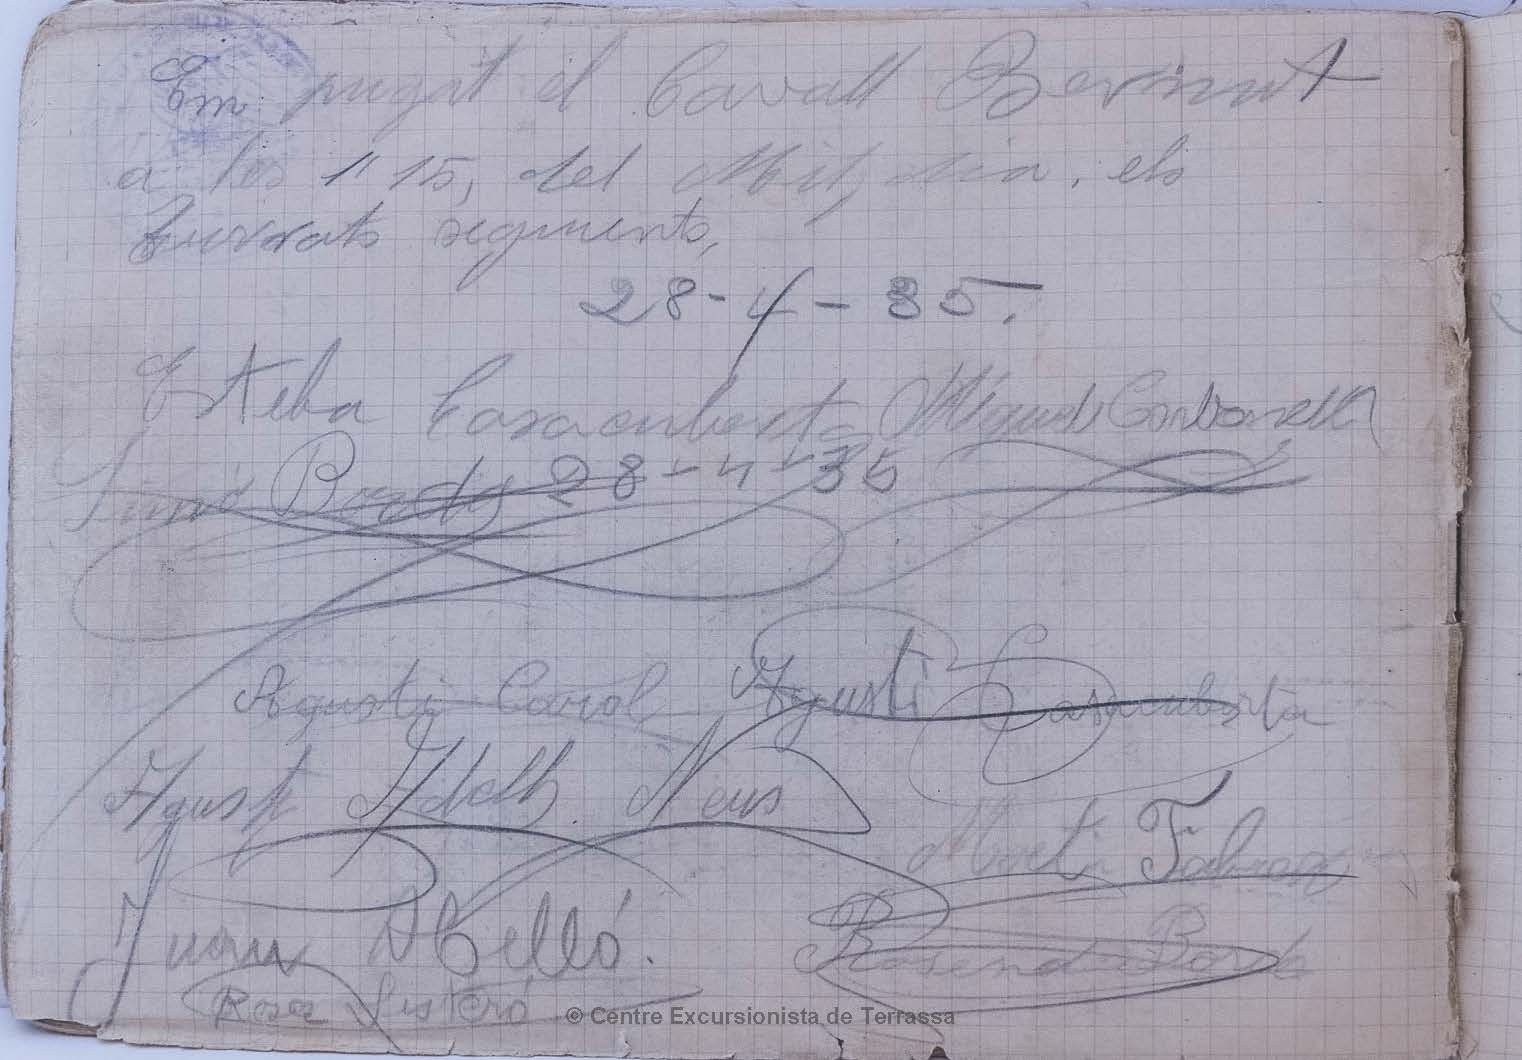 Em pugat el Cavall Bernat
a les 1"15, del Mitj dia, els
furrats seguents,
28-4-35.
Esteba Casacuberta Miquel Carbonell
Simó 28-4-35
Agustí Carol Agustí Casacuberta
Agustí Adell Neus
Martí
Juan Abelló.
Rosendo
Rosa Sisteró
© Centre Excursionista de Terrassa